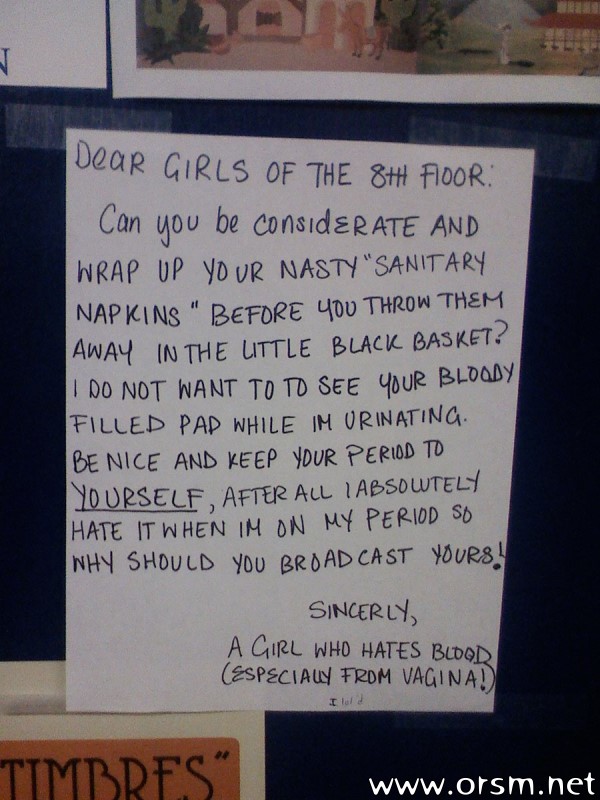 N
Dear GIRLS OF THE 8TH FlOOR:
Can you be considERATE AND
WRAP UP YOUR NASTY "SANITARY
NAPKINS" BEFORE YOU THROW THEM
AWAY IN THE LITTLE BLACK BASKET?
I DO NOT WANT TO TO SEE YOUR BLOODY
FILLED PAD WHILE IM URINATING.
BE NICE AND KEEP YOUR PERIOD TO
YOURSELF, AFTER ALL I ABSOLUTELY
HATE IT WHEN IM ON MY PERIOD SO
WHY SHOULD YOU BROADCAST YOURS!
SINCERLY,
A GIRL WHO HATES BLOOD
(ESPECIALLY FROM VAGINA!)
I lol'd
TIMBRES"
www.orsm.net